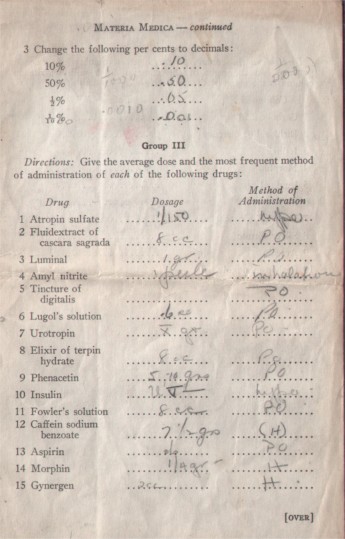 MATERIA MEDICA — continued
3 Change the following per cents to decimals:
10% .10
50% .50
½% .05
⅒% .001
.0010
Group III
Directions: Give the average dose and the most frequent method
of administration of each of the following drugs:
Drug Dosage Method of
Administration
1 Atropin sulfate 1/150 hypo
2 Fluidextract of
cascara sagrada 8 cc PO
3 Luminal 1 gr
4 Amyl nitrite inhalation
5 Tincture of
digitalis PO
6 Lugol's solution
7 Urotropin X gr PO
8 Elixir of terpin
hydrate 8 cc Po
9 Phenacetin PO
10 Insulin
11 Fowler's solution PO
12 Caffein sodium
benzoate 7½ grs (H)
13 Aspirin PO
14 Morphin H
15 Gynergen 2cc H
[OVER]